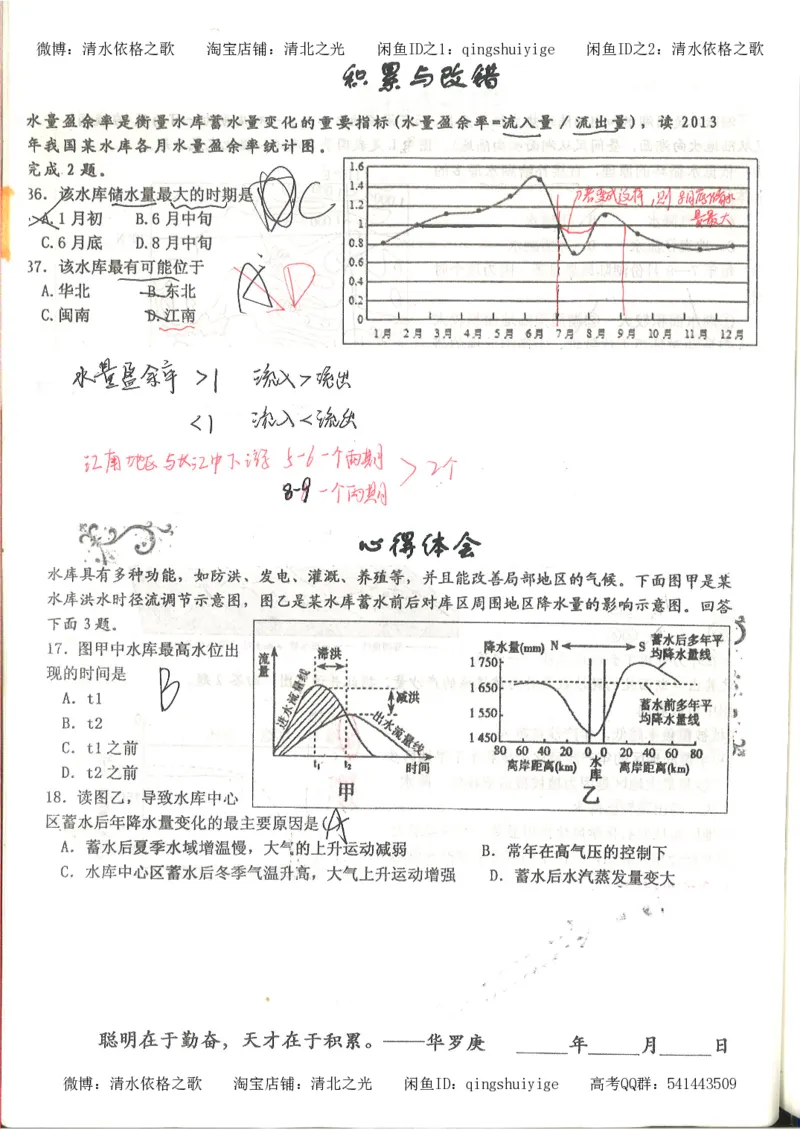 微博：清水依格之歌 淘宝店铺：清北之光 闲鱼ID之1：qingshuiyige 闲鱼ID之2：清水依格之歌
积累与改错
水量盈余率是衡量水库蓄水量变化的重要指标(水量盈余率=流入量/流出量)，读2013
年我国某水库各月水量盈余率统计图。
完成2题。
36．该水库储水量最大的时期是 C
A.1月初 B.6月中旬
C.6月底 D.8月中旬
37．该水库最有可能位于 A D
A.华北 B.东北
C.闽南 D.江南
1.6
1.4
1.2
1
0.8
0.6
0.4
0.2
0
1月 2月 3月 4月 5月 6月 7月 8月 9月 10月 11月 12月
若变成这样，则8月底储水
量最大
水量盈余率 >1 流入>流出
<1 流入<流出
江南地区与长江中下游 5-6一个雨期
8-9一个雨期
>2个
心得体会
水库具有多种功能，如防洪、发电、灌溉、养殖等，并且能改善局部地区的气候。下面图甲是某
水库洪水时径流调节示意图，图乙是某水库蓄水前后对库区周围地区降水量的影响示意图。回答
下面3题。
17．图甲中水库最高水位出
现的时间是 B
A．t1
B．t2
C．t1之前
D．t2之前
流量
滞洪
减洪
进水流量线
出水流量线
t₁ t₂ 时间
甲
降水量(mm) N S
蓄水后多年平
均降水量线
1 750
1 650
1 550
1 450
蓄水前多年平
均降水量线
80 60 40 20 0 0 20 40 60 80
离岸距离(km) 水库 离岸距离(km)
乙
18．读图乙，导致水库中心
区蓄水后年降水量变化的最主要原因是( A
A．蓄水后夏季水域增温慢，大气的上升运动减弱 B．常年在高气压的控制下
C．水库中心区蓄水后冬季气温升高，大气上升运动增强 D．蓄水后水汽蒸发量变大
聪明在于勤奋，天才在于积累。——华罗庚 ____年____月____日
微博：清水依格之歌 淘宝店铺：清北之光 闲鱼ID：qingshuiyige 高考QQ群：541443509